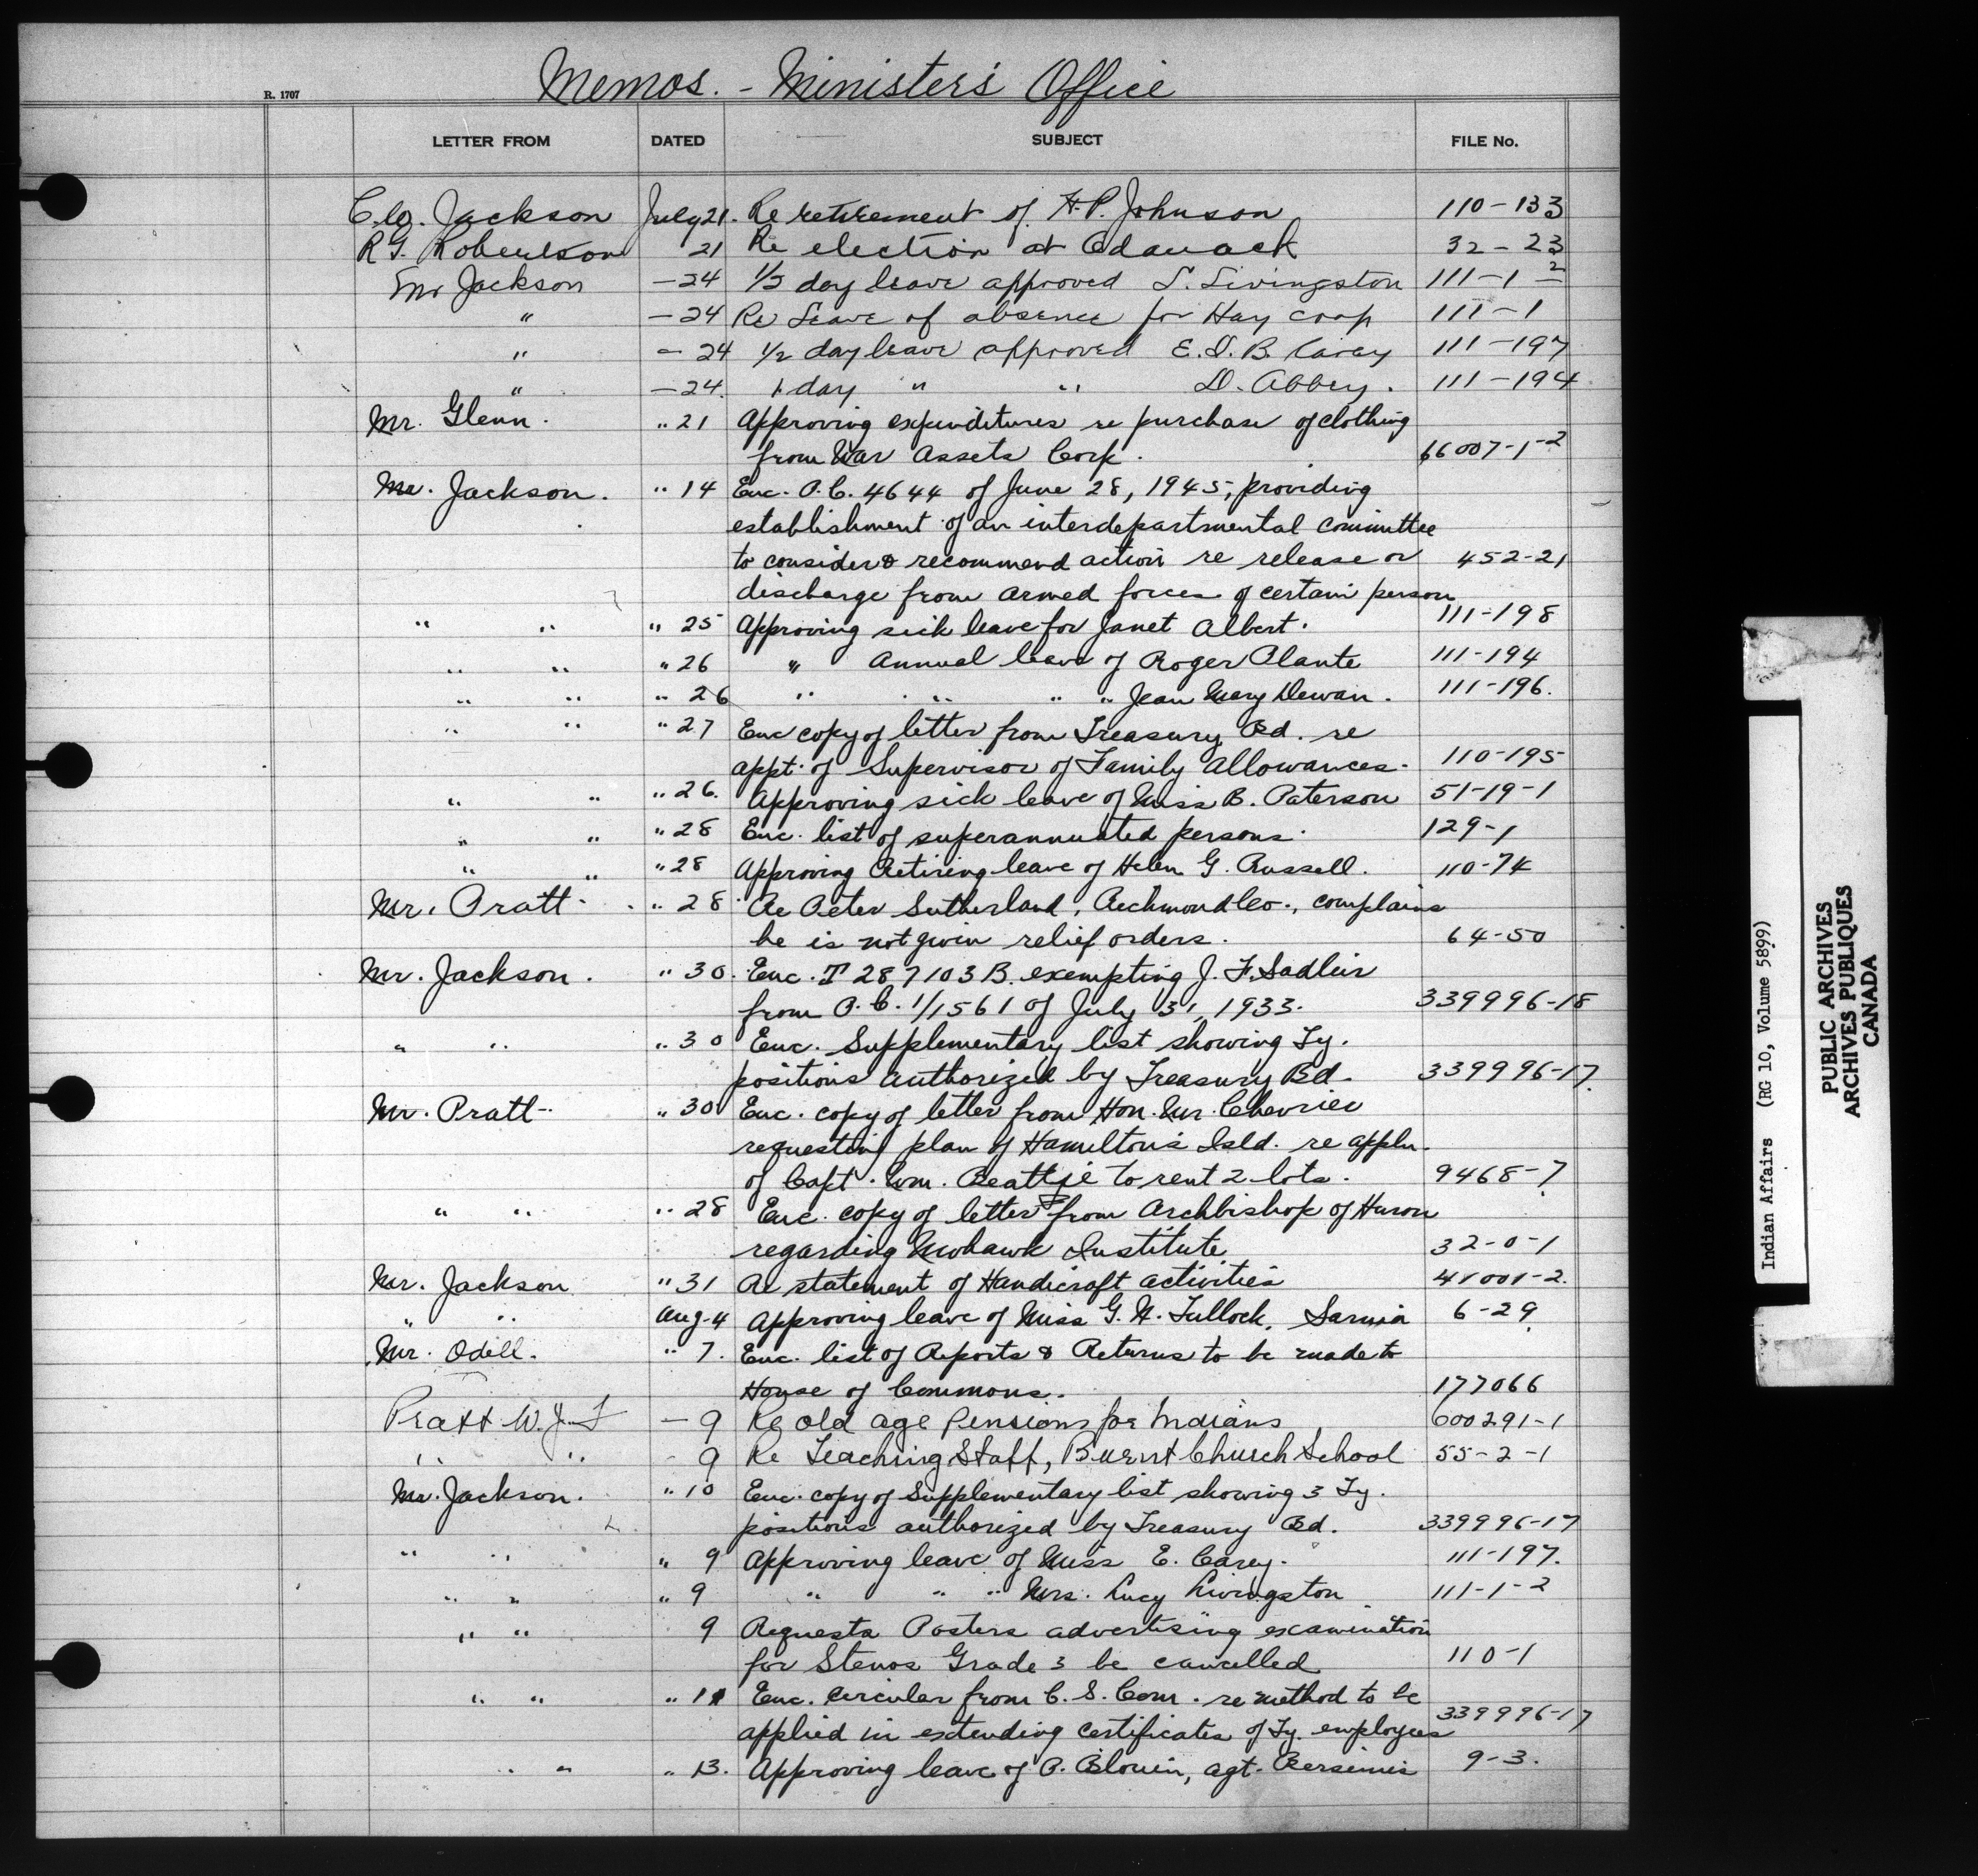 Memos. - Minister's Office
R. 1707
LETTER FROM DATED SUBJECT FILE No.
C.W. Jackson July 21. Re retirement of H.P. Johnson 110-133
R.G. Robertson 21 Re election at Odanack 32-23
Mr Jackson -24 1/2 day leave approved L. Livingston 111-1-2
" -24 Re Leave of absence for Hay Coop 111-1
" -24 1/2 day leave approved E.D.B. Carey 111-197
" -24. 1 day " " D. Abbey. 111-194
Mr. Glenn. " 21 Approving expenditures re purchase of clothing
from War Assets Corp. 66007-1-2
Mr. Jackson. " 14 Enc. P.C. 4644 of June 28, 1945, providing
establishment of an interdepartmental committee
to consider & recommend action re release or 452-21
discharge from armed forces of certain person
" " " 25 Approving sick leave for Janet Albert. 111-198
" " " 26 " Annual leave of Roger Plante 111-194
" " " 26 " " " " Jean Mary Dewan. 111-196.
" " " 27 Enc copy of letter from Treasury Bd. re
appt. of Supervisor of Family Allowances. 110-195
" " " 26. Approving sick leave of Miss B. Paterson 51-19-1
" " " 28 Enc. list of superannuated persons. 129-1
" " " 28 Approving Retiring leave of Helen G. Russell. 110-74
Mr. Pratt " 28 Re Peter Sutherland, Richmond Co., complains
he is not givin relief orders. 64-50
Mr. Jackson. " 30. Enc. T 287103B. exempting J.F. Sadleir
from P.C. 1/1561 of July 31, 1933. 339996-18
" " " 30 Enc. Supplementary list showing Ty.
positions authorized by Treasury Bd. 339996-17.
Mr. Pratt " 30 Enc. copy of letter from Hon. Mr. Chevrier
requesting plan of Hamilton's Isld. re appln.
of Capt. Wm. Beattie to rent 2 lots. 9468-7
" " " 28 Enc. copy of letter from Archbishop of Huron
regarding Mohawk Institute 32-0-1
Mr. Jackson " 31 Re statement of Handicraft activities 41001-2.
" " Aug. 4 Approving leave of Miss G. N. Tullock, Sarnia 6-29
Mr. Odell. " 7. Enc. list of Reports & Returns to be made to
House of Commons. 177066
Pratt W.J.F - 9 Re old age Pensions for Indians 600291-1
" " - 9 Re Teaching Staff, Burnt Church School 55-2-1
Mr. Jackson. " 10 Enc. copy of Supplementary list showing 3 Ty.
positions authorized by Treasury Bd. 339996-17
" " " 9 Approving leave of Miss E. Carey. 111-197.
" " " 9 " " " Mrs. Lucy Livingston 111-1-2
" " 9 Requests Posters advertising examination
for Stenos Grade 3 be cancelled 110-1
" " " 11 Enc. circular from C. S. Com. re method to be
applied in extending certificates of Ty. employees 339996-17
" " " 13. Approving leave of P. Blouin, agt. Bersimis 9-3.
Indian Affairs (RG 10, Volume 5899)
PUBLIC ARCHIVES
ARCHIVES PUBLIQUES
CANADA